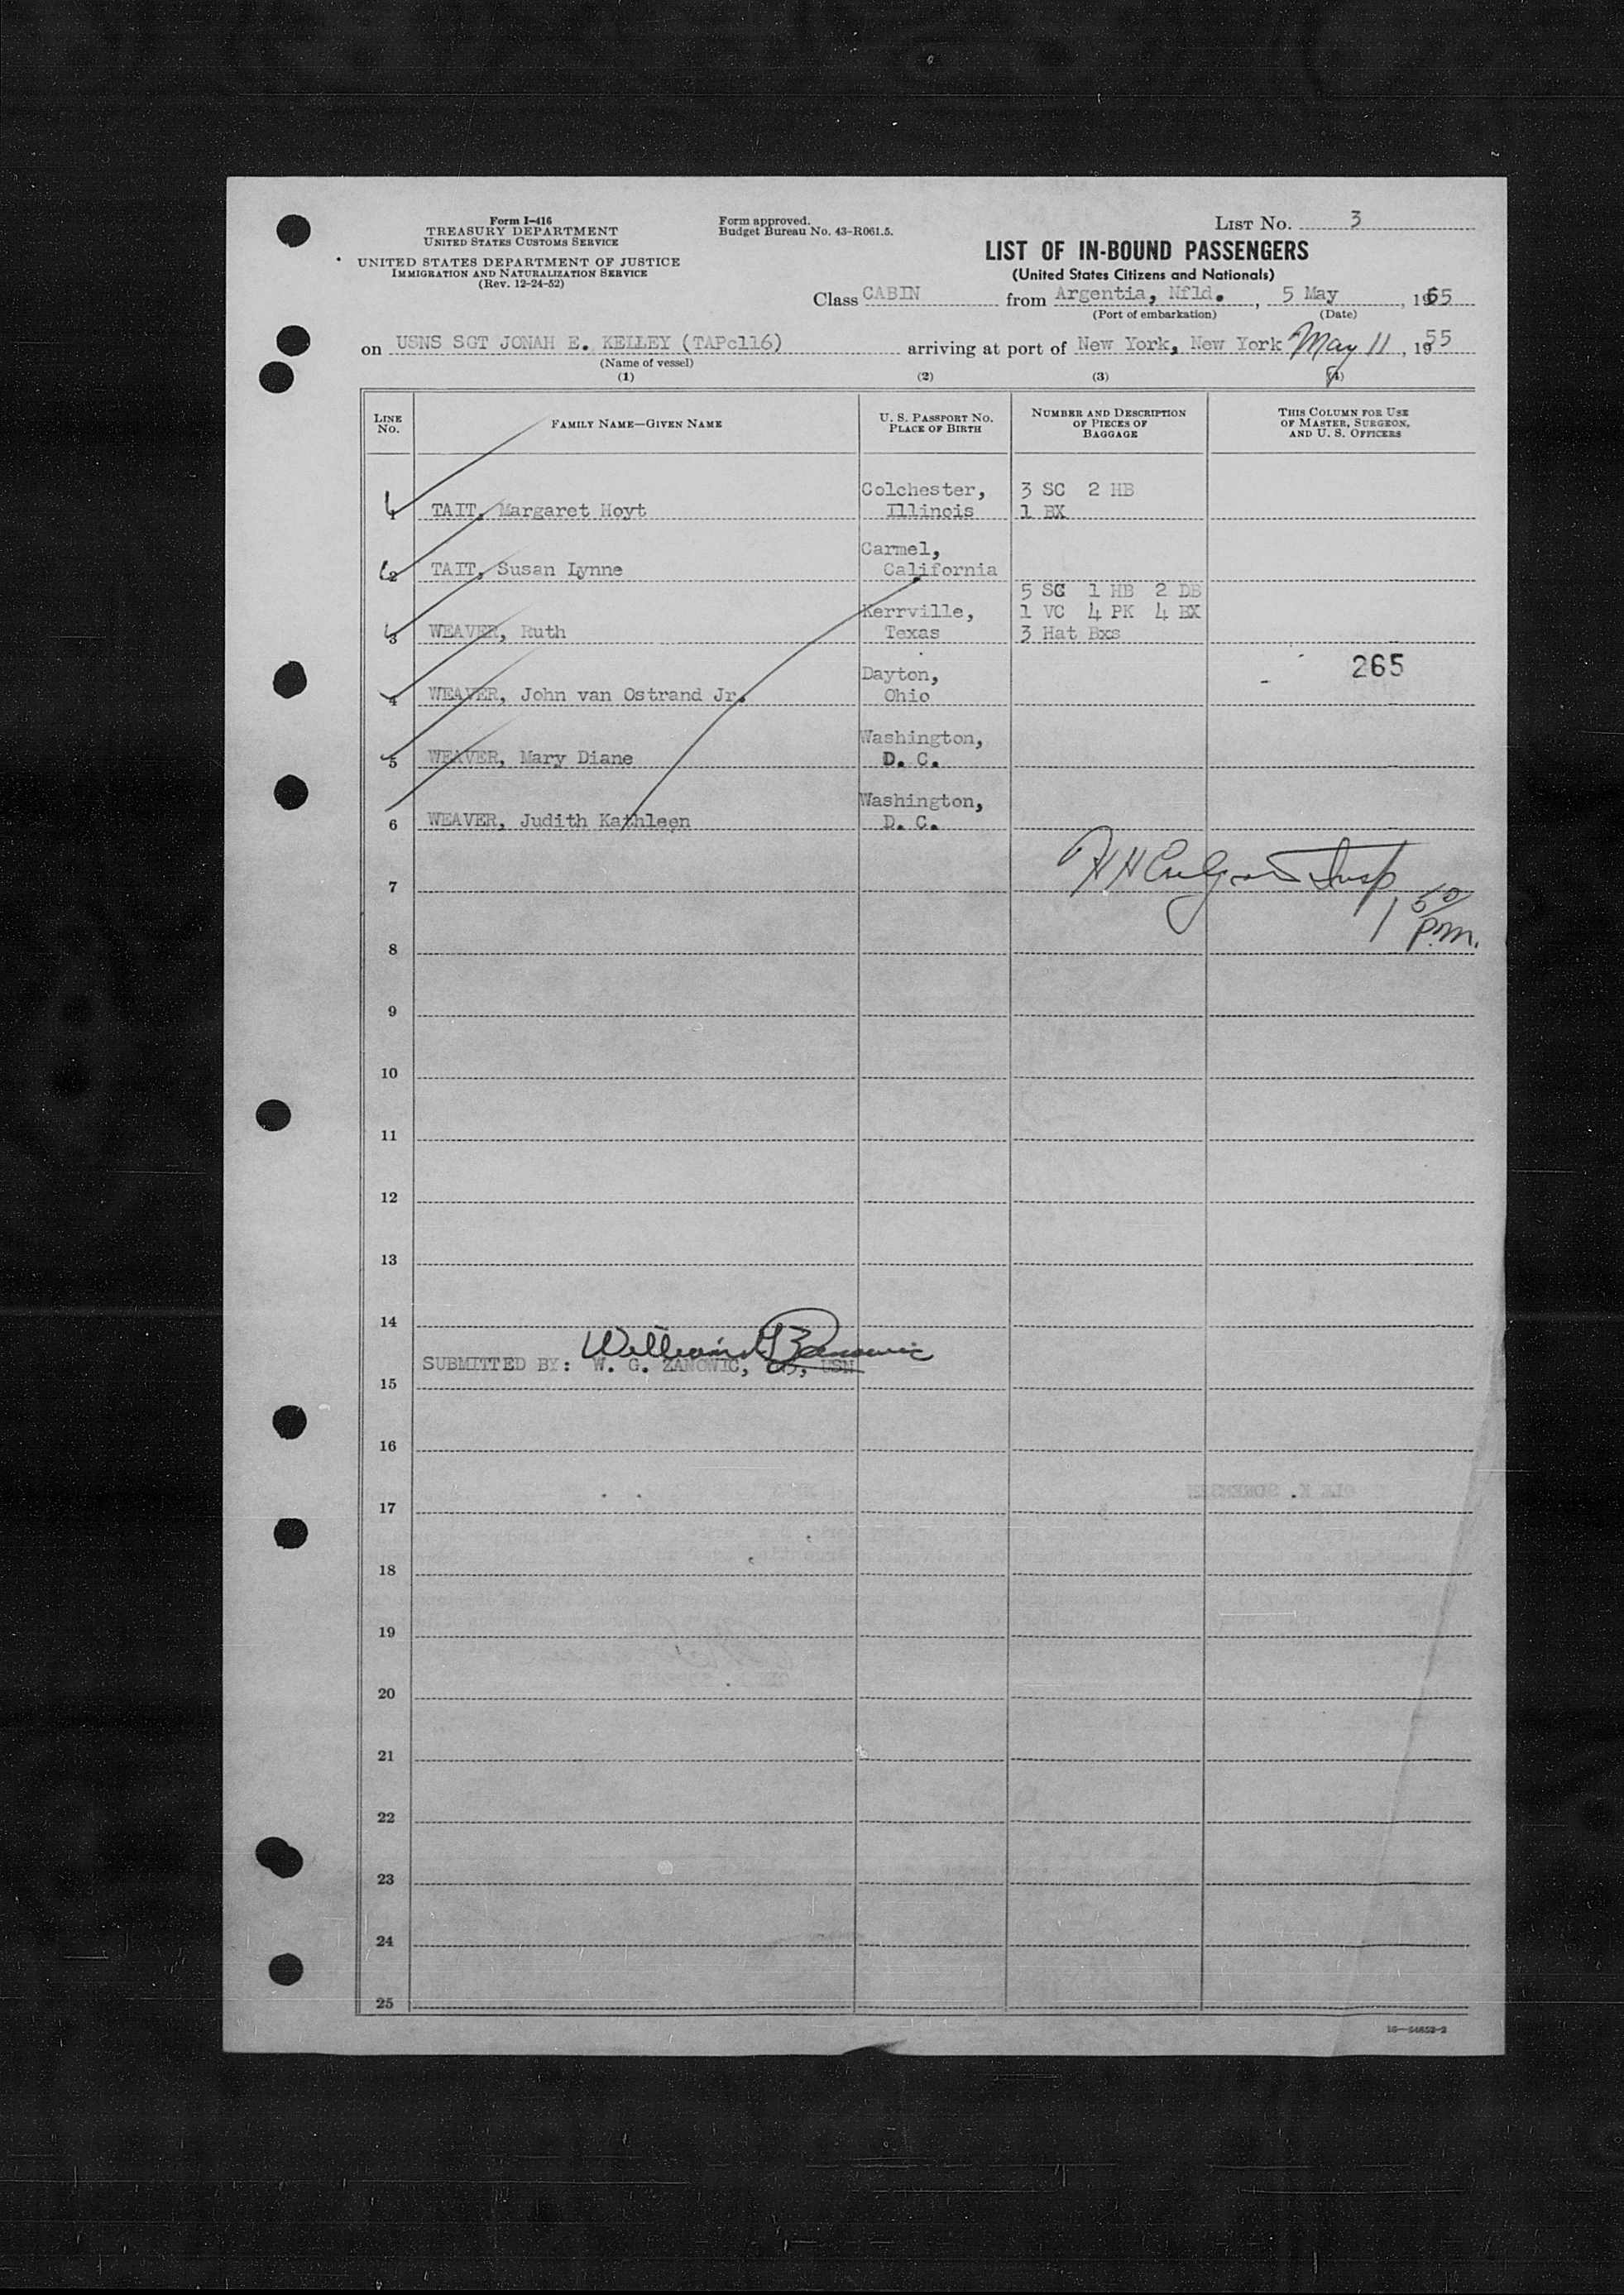 Form I-416
TREASURY DEPARTMENT
UNITED STATES CUSTOMS SERVICE
UNITED STATES DEPARTMENT OF JUSTICE
IMMIGRATION AND NATURALIZATION SERVICE
(Rev. 12-24-52)
Form approved.
Budget Bureau No. 43-R061.5.
LIST NO. 3
LIST OF IN-BOUND PASSENGERS
(United States Citizens and Nationals)
Class CABIN from Argentia, Nfld., 5 May, 1955
(Port of embarkation) (Date)
on USNS SGT JONAH E. KELLEY (TAPc116) arriving at port of New York, New York May 11, 1955
(Name of vessel)
(1) (2) (3) (4)
LINE NO. FAMILY NAME—GIVEN NAME U. S. PASSPORT NO. PLACE OF BIRTH NUMBER AND DESCRIPTION OF PIECES OF BAGGAGE THIS COLUMN FOR USE OF MASTER, SURGEON, AND U. S. OFFICERS
Colchester, 3 SC 2 HB
1 TAIT, Margaret Hoyt Illinois 1 BX
Carmel,
2 TAIT, Susan Lynne California
5 SC 1 HB 2 DB
Kerrville, 1 VC 4 PK 4 BX
3 WEAVER, Ruth Texas 3 Hat Bxs
Dayton, 265
4 WEAVER, John van Ostrand Jr. Ohio
Washington,
5 WEAVER, Mary Diane D. C.
Washington,
6 WEAVER, Judith Kathleen D. C.
Insp
7
1 50 P.M.
8
9
10
11
12
13
14
SUBMITTED BY: W. G. ZANOWIC, USN
15
16
17
18
19
20
21
22
23
24
25
16—54652-2